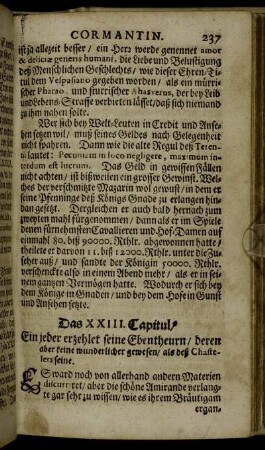 CORMANTIN. 237
ist ja allezeit besser / ein Herz werde genennet amor
& deliciæ generis humani, die Liebe und Belustigung
deß Menschlichen Geschlechts / wie dieser Ehren-Ti-
tul dem Vespasiano gegeben worden / als ein mürri-
scher Pharao, und stürrischer Ahasverus, der bey Leib
und Lebens-Straffe verbieten lässet / daß sich niemand
zu ihm nahen solte.
Wer sich bey Welt-Leuten in Credit und Anse-
hen setzen wil / muß seines Geldes nach Gelegenheit
nicht spahren. Dann wie die alte Regul deß Teren-
tii lautet: Pecuniam in loco negligere, maximum in-
terdum est lucrum. Das Geld in gewissen Fällen
nicht achten / ist bißweilen ein grosser Gewinst. Wel-
ches der verschmitzte Mazarin wol gewust / in dem er
seine Pfenninge deß Königs Gnade zu erlangen hin-
dan gesetzt. Dergleichen er auch bald hernach zum
zweyten mahl fürgenommen / dann als er im Spiele
denen fürnehmsten Cavallieren und Hof-Damen auf
einmahl 80. biß 90000. Rthlr. abgewonnen hatte /
theilete er darvon 11. biß 12000. Rthlr. unter die Zu-
seher auß / und sandte der Königin 50000. Rthlr.
verschenckte also in einem Abend mehr / als er in sei-
nem gantzen Vermögen hatte. Wodurch er sich bey
dem Könige in Gnaden / und bey dem Hofe in Gunst
und Ansehen setzte.
Das XXIII. Capitul /
Ein jeder erzehlet seine Ebentheurn / deren
aber keine wunderlicher gewesen / als deß Chaste-
lers seine.
ES ward noch von allerhand andern Materien
discurrret / aber die schöne Amirande verlang-
te gar sehr zu wissen / wie es ihrem Bräutigam
ergan-